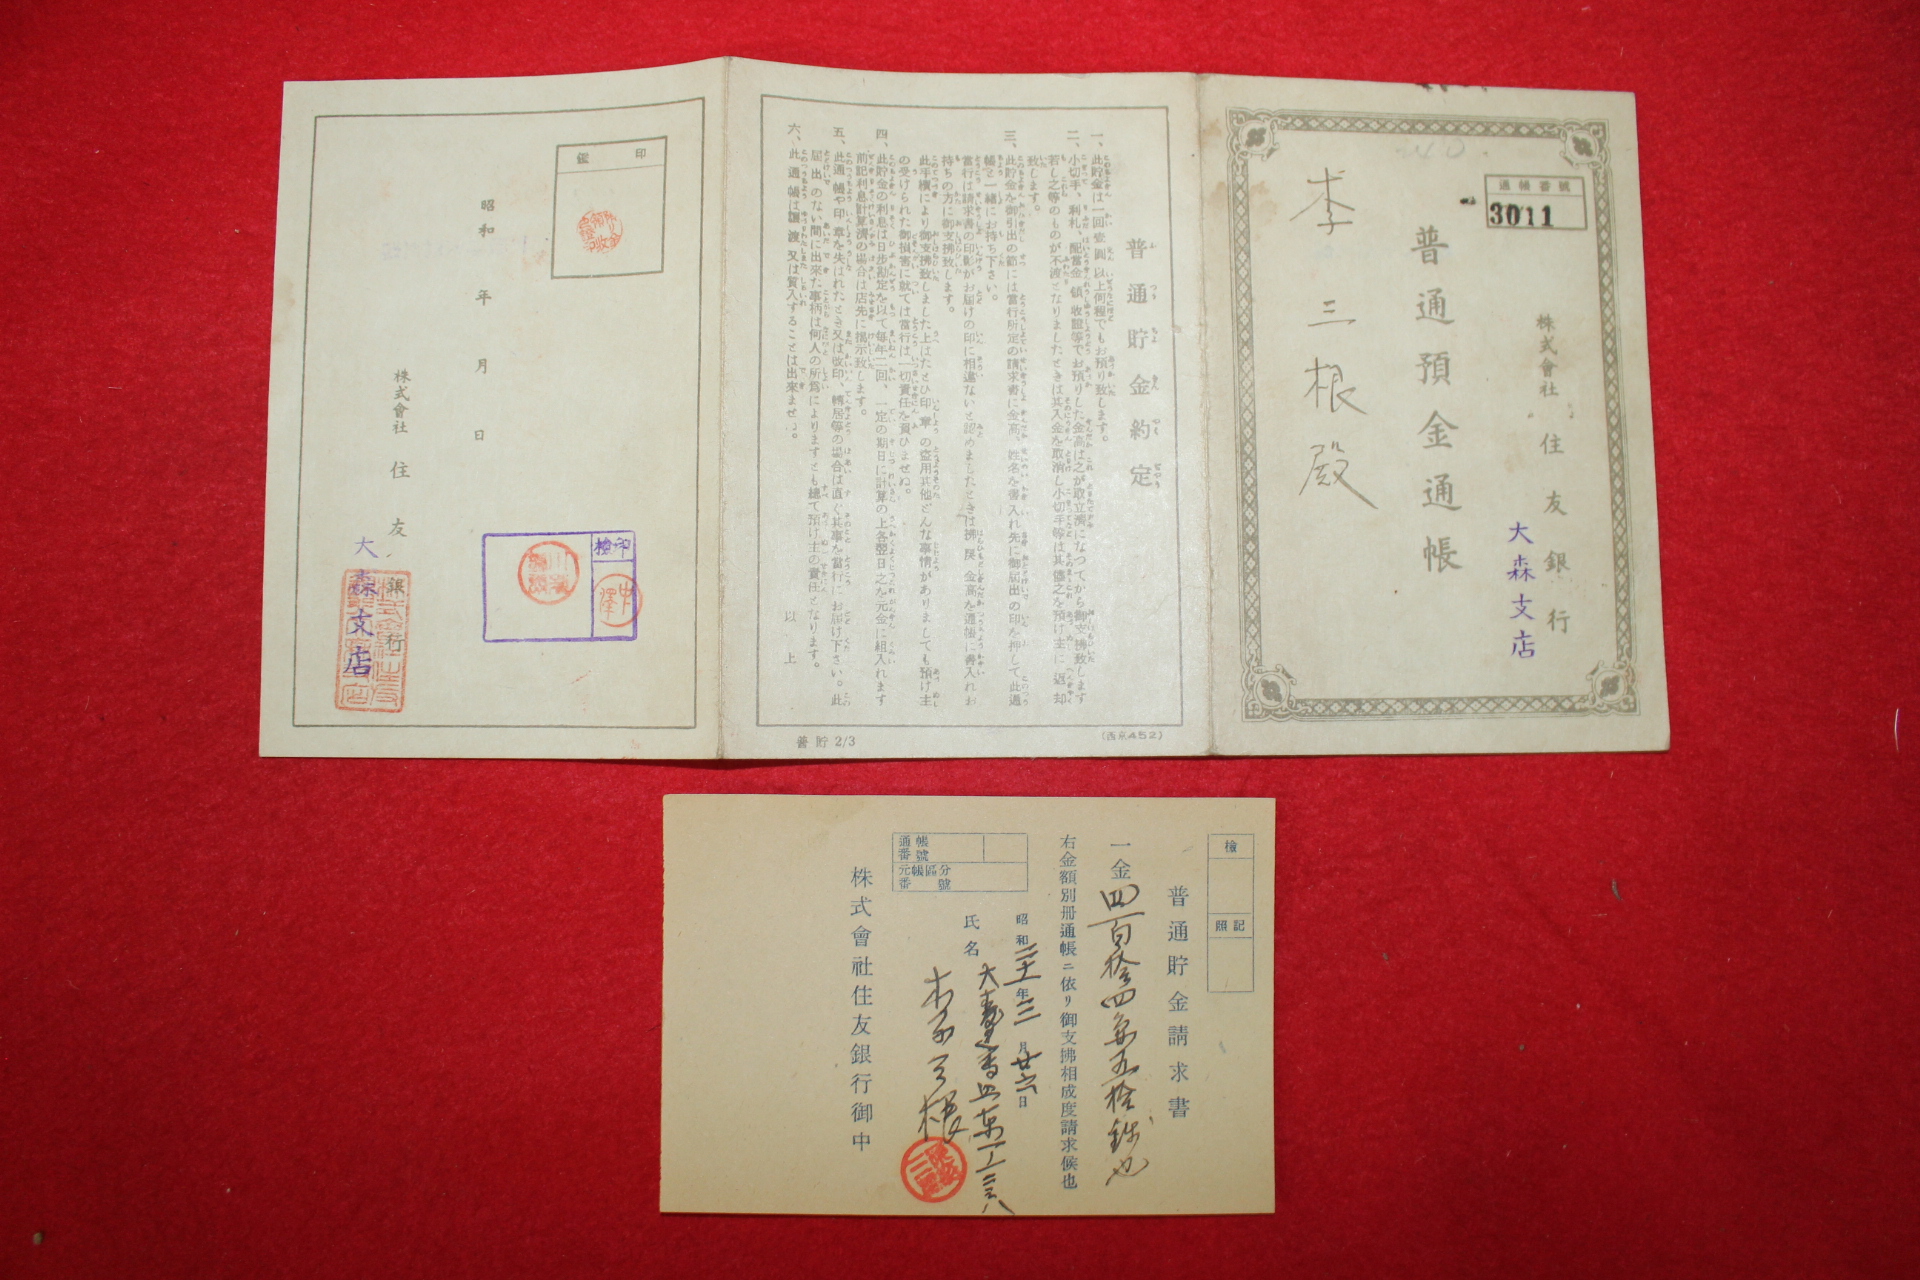 通帳番號
3011
株式會社 住友銀行
大森支店
普通預金通帳
李三根殿
普通貯金約定
一、此貯金は一回壹圓以上何程でもお預り致します。
二、小切手、利札、配當金領收證等でお預りした金高は之が取立濟になつてから御支拂致します
若し之等のものが不渡となりましたときは其入金を取消し小切手等は其儘之を預け主に返却
致します。
三、此貯金を御引出の節には當行所定の請求書に金高、姓名を書入れ先に御屆出の印を押して此通
帳と一緒にお持ち下さい。
當行は請求書の印影がお届けの印に相違ないと認めましたときは拂戻金高を通帳に書入れお
持ちの方に御支拂致します。
此手續により御支拂致しました上はたとひ印章の盗用其他どんな事情がありましても預け主
の受けられた御損害に就ては當行は一切責任を負ひませぬ。
四、此貯金の利息は日歩勘定を以て毎年二回、一定の期日に計算の上各翌日之を元金に組入れます
前記利息計算濟の場合は店先に揭示致します。
五、此通帳や印章を失はれたとき又は改印、轉居等の場合は直ぐ其事を當行にお届け下さい。此
届出のない間に出來た事柄は何人の所爲によりますとも總て預け主の責任となります。
六、此通帳は讓渡又は質入することは出來ませぬ。
以上
普貯 2/3
(西京452)
印鑑
昭和 年 月 日
株式會社 住友銀行
大森支店
檢印
中澤
檢
照記
普通貯金請求書
一金四百拾四圓五拾錢也
右金額別冊通帳ニ依リ御支拂相成度請求候也
昭和二十一年三月廿六日
氏名
李三根
通帳番號
元帳區分番號
株式會社住友銀行御中